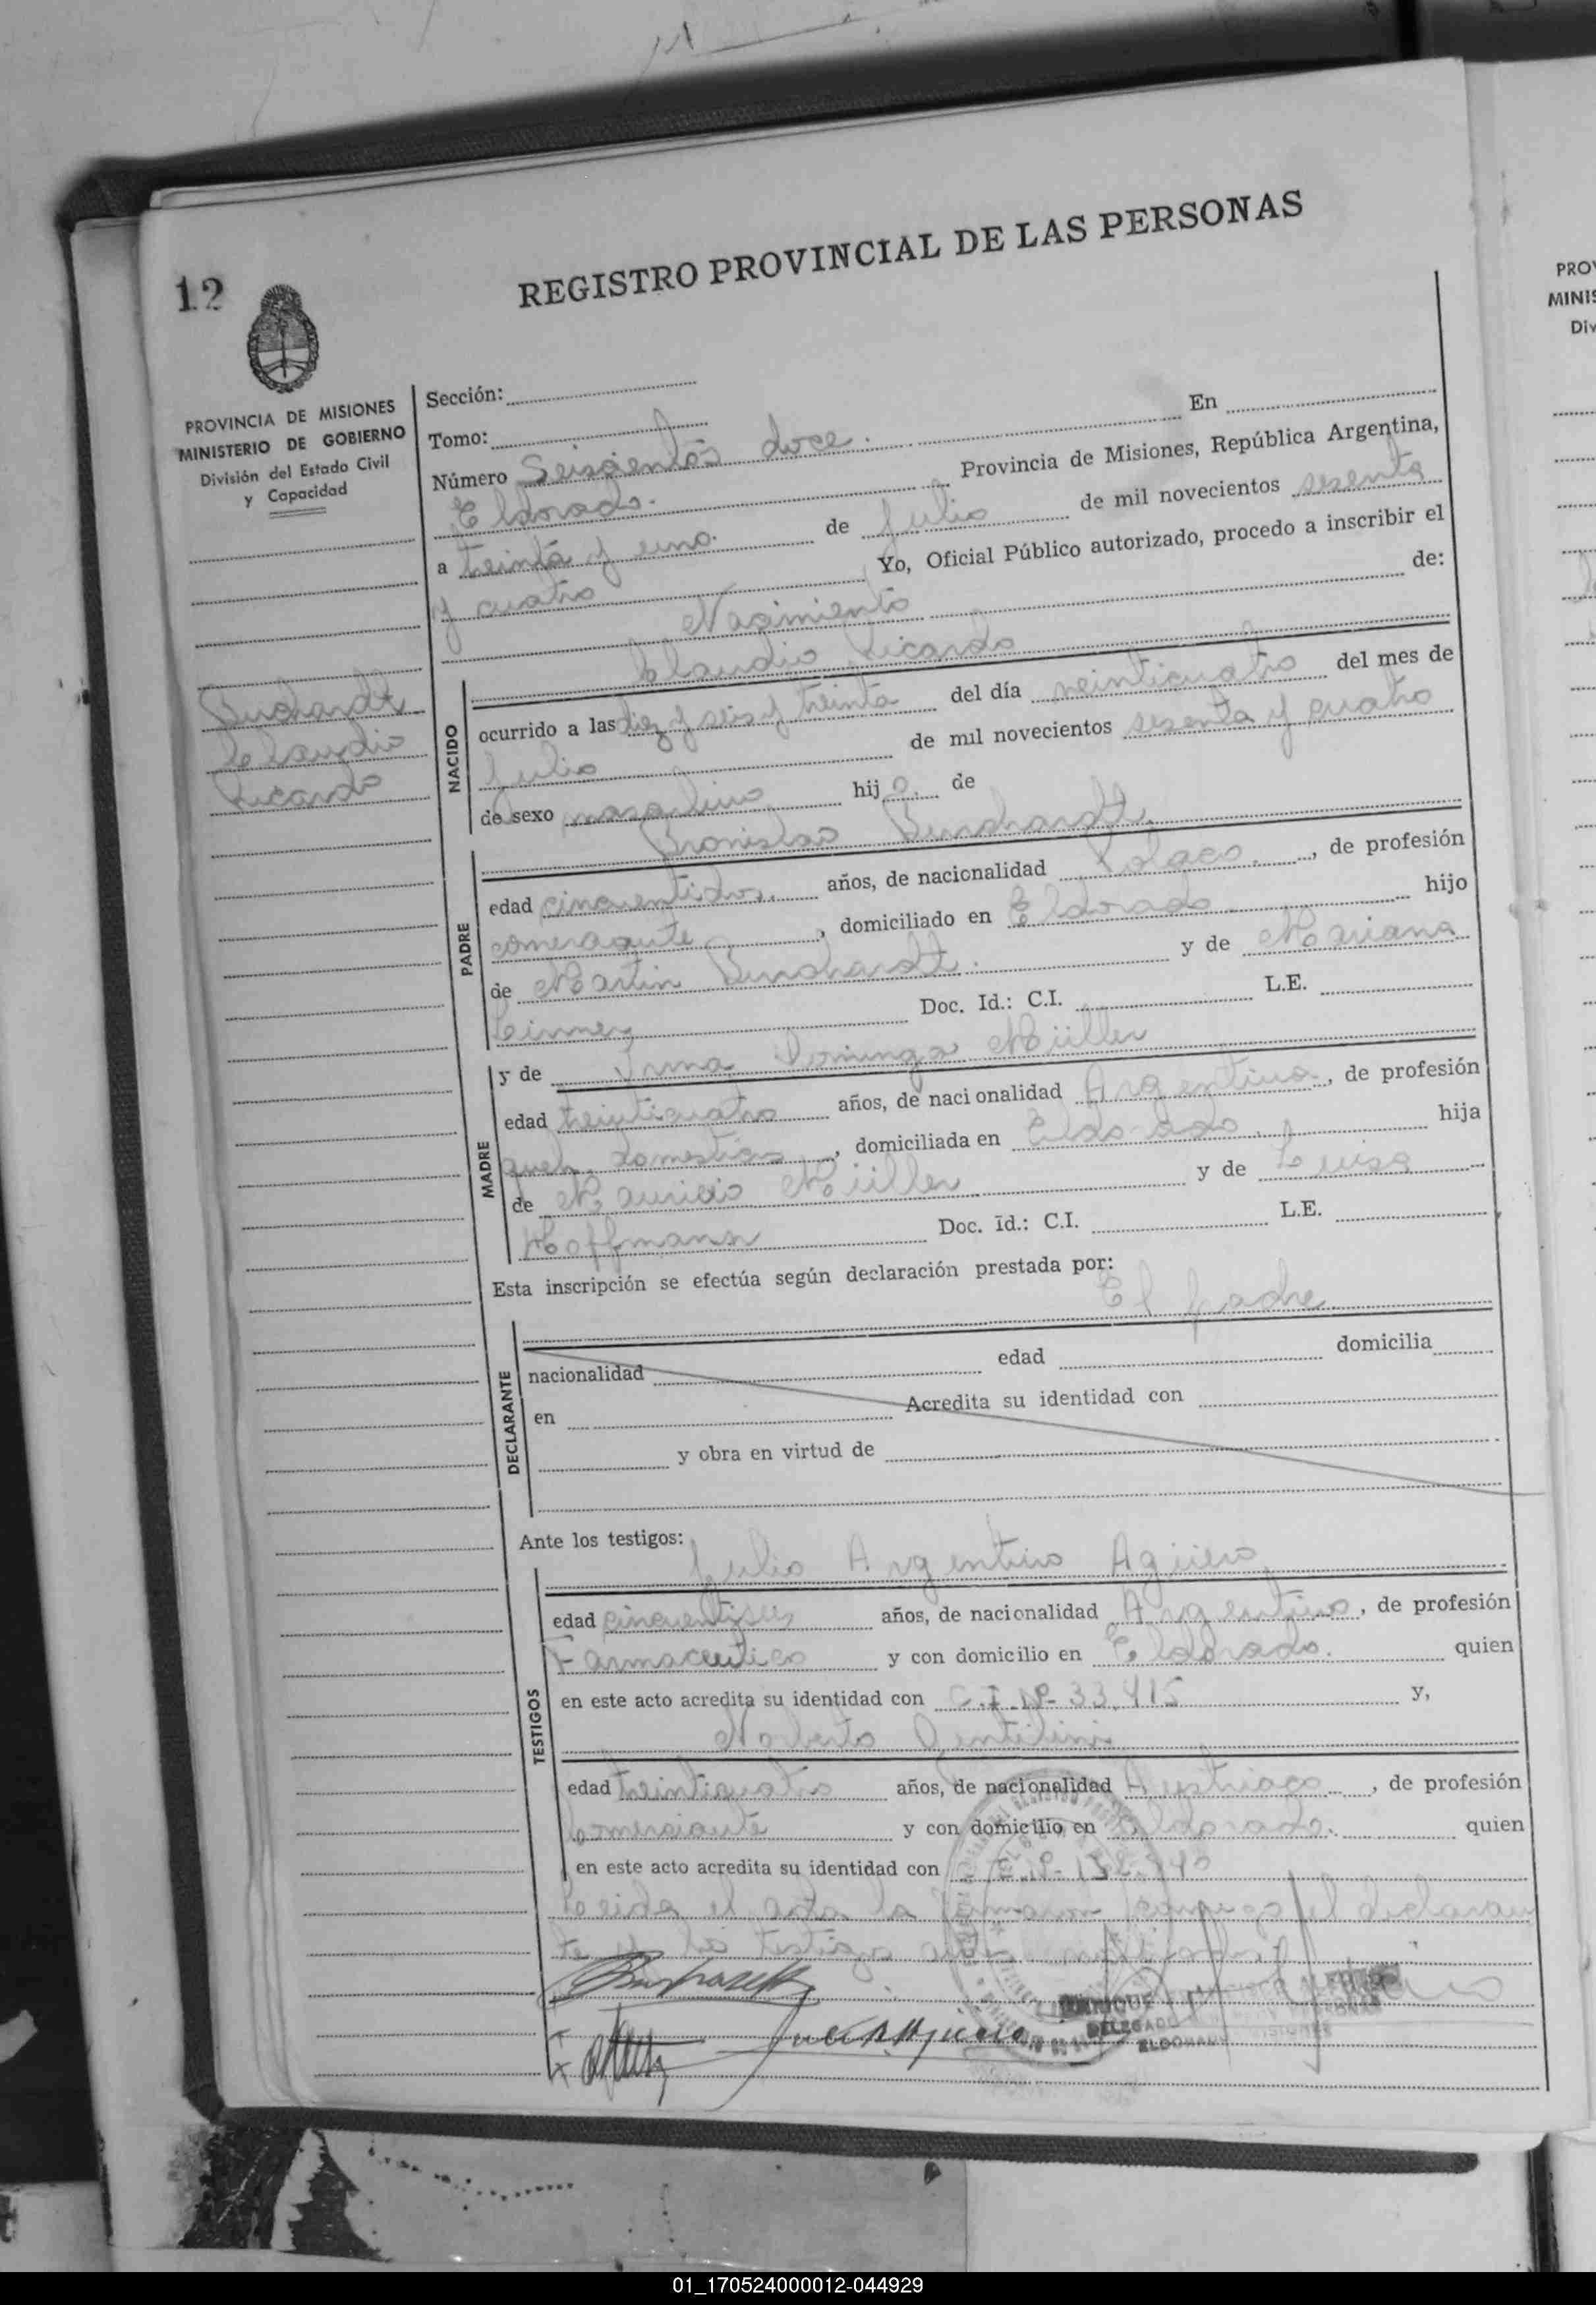 REGISTRO PROVINCIAL DE LAS PERSONAS
12
PROVINCIA DE MISIONES
MINISTERIO DE GOBIERNO
División del Estado Civil
y Capacidad
Burchardt
Claudio
Ricardo
Sección:
Tomo:
Número Seiscientos doce. En
Eldorado. Provincia de Misiones, República Argentina,
a treinta y uno. de Julio de mil novecientos sesenta
y cuatro Yo, Oficial Público autorizado, procedo a inscribir el
Nacimiento de:
NACIDO
Claudio Ricardo
ocurrido a las diez y seis y treinta del día veinticuatro del mes de
Julio de mil novecientos sesenta y cuatro
de sexo masculino hijo. de
PADRE
Bronislao Burchardt.
edad cincuentidos. años, de nacionalidad Polaco., de profesión
comerciante, domiciliado en Eldorado. hijo
de Martin Burchardt. y de Mariana
Doc. Id.: C.I. L.E.
MADRE
y de Irma Dominga Müller
edad treinticuatro años, de nacionalidad Argentina, de profesión
queh. domesticos, domiciliada en Eldorado. hija
de Mauricio Müller y de Luisa
Hoffmann Doc. id.: C.I. L.E.
Esta inscripción se efectúa según declaración prestada por:
El padre
DECLARANTE
nacionalidad edad domicilia
en Acredita su identidad con
y obra en virtud de
Ante los testigos:
TESTIGOS
Julio Argentino Agüero
edad años, de nacionalidad Argentino, de profesión
Farmaceutico y con domicilio en Eldorado. quien
en este acto acredita su identidad con C.I. Nº 33.415 y,
Norberto
edad treinticuatro años, de nacionalidad Austriaco, de profesión
Comerciante y con domicilio en Eldorado. quien
en este acto acredita su identidad con
Leida el acta la firmaron conmigo el declaran
te y los testigos
DELEGADO
ELDORADO MISIONES
PRO
MINIS
Div
01_170524000012-044929